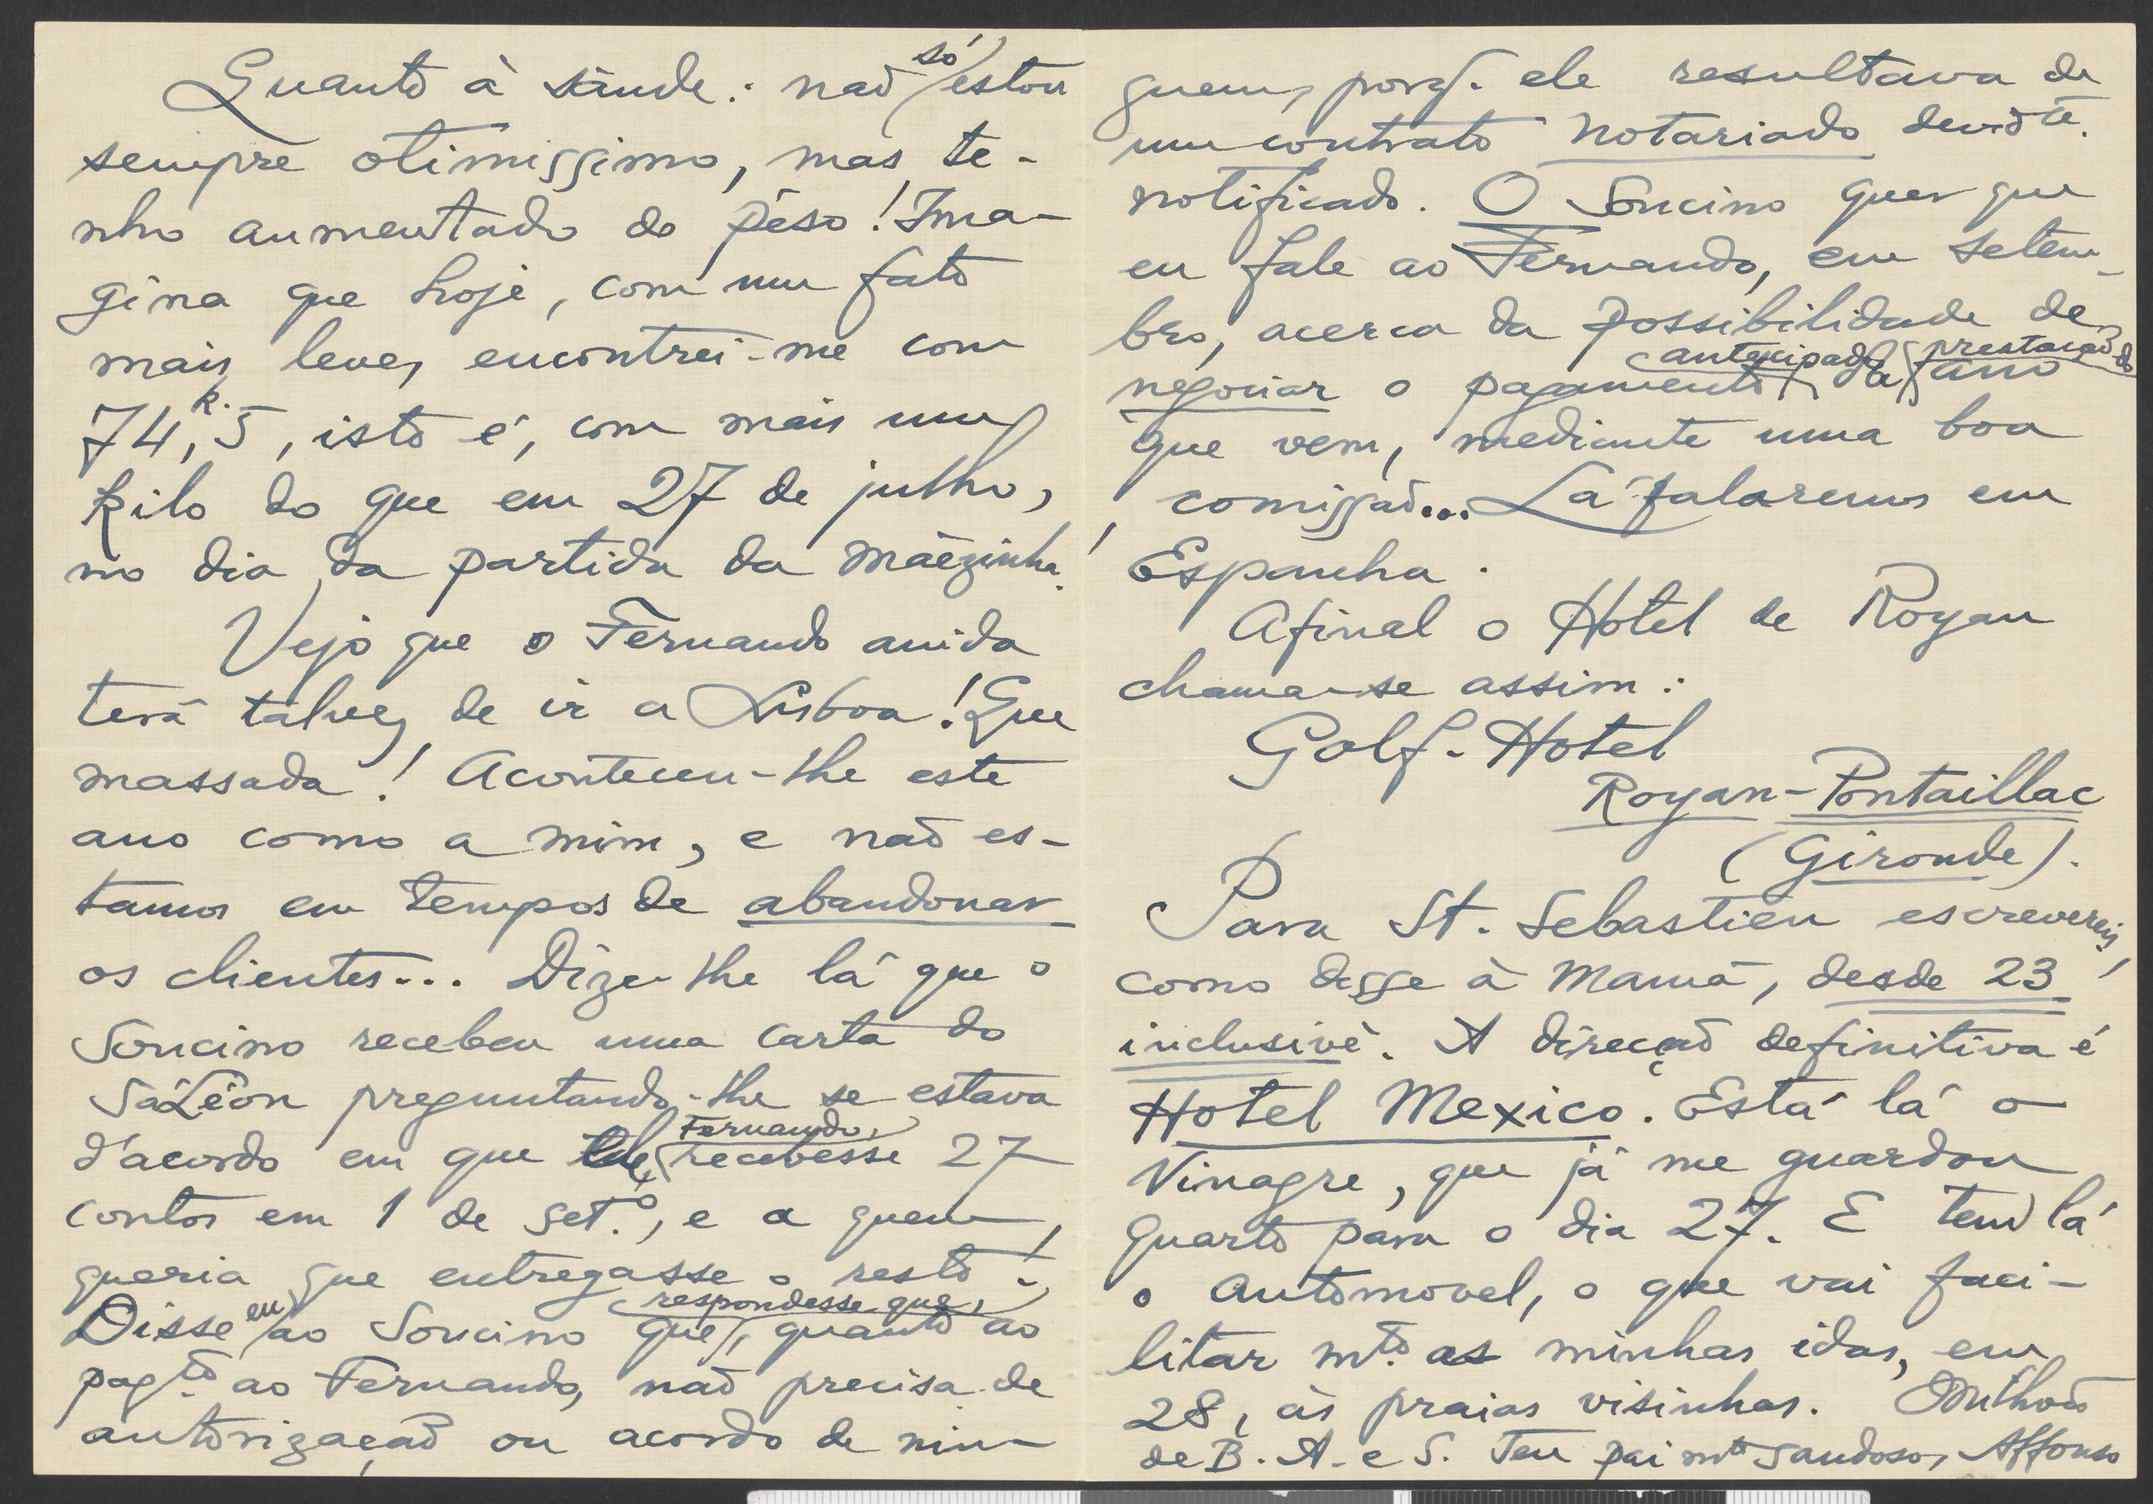 Quanto à saude: não só estou
sempre otimissimo, mas te-
nho aumentado do pêso! Ima-
gina que hoje, com um fato
mais leve, encontrei-me com
74,k.5, isto é, com mais um
kilo do que em 27 de julho,
no dia da partida da mãezinha!
Vejo que o Fernando ainda
terá talvez de ir a Lisboa! Que
massada! Aconteceu-lhe este
ano como a mim, e não es-
tamos em tempos de abandonar
os clientes... Dize-lhe lá que o
Soucino recebeu uma carta do
SáLéon preguntando-lhe se estava
Fernando,
d'acordo em que recebesse 27
contos em 1 de set.o, e a quem
queria que entregasse o resto!
respondesse que,
Disse eu ao Soucino que, quanto ao
pagto. ao Fernando, não precisa de
autorização ou acordo de nin-
guem, porq. ele resultava de
um contrato notariado devidte.
notificado. O Soucino quer que
eu fale ao Fernando, em setem-
bro, acerca da possibilidade de
antecipado prestação do
negociar o pagamento da ano
que vem, mediante uma boa
comissão... Lá falaremos em
Espanha.
Afinal o Hotel de Royan
chama-se assim:
Golf-Hotel
Royan-Pontaillac
(Gironde).
Para St. Sebastien escrevereis,
como desse à Mamã, desde 23
inclusivè. A direcção definitiva é
Hotel Mexico. Está lá o
Vinagre, que já me guardou
quarto para o dia 27. E tem lá
o automovel, o que vai faci-
litar mto. as minhas idas, em
28, às praias visinhas. Milhões
de B. A. e S. Teu pai mto saudoso, Affonso